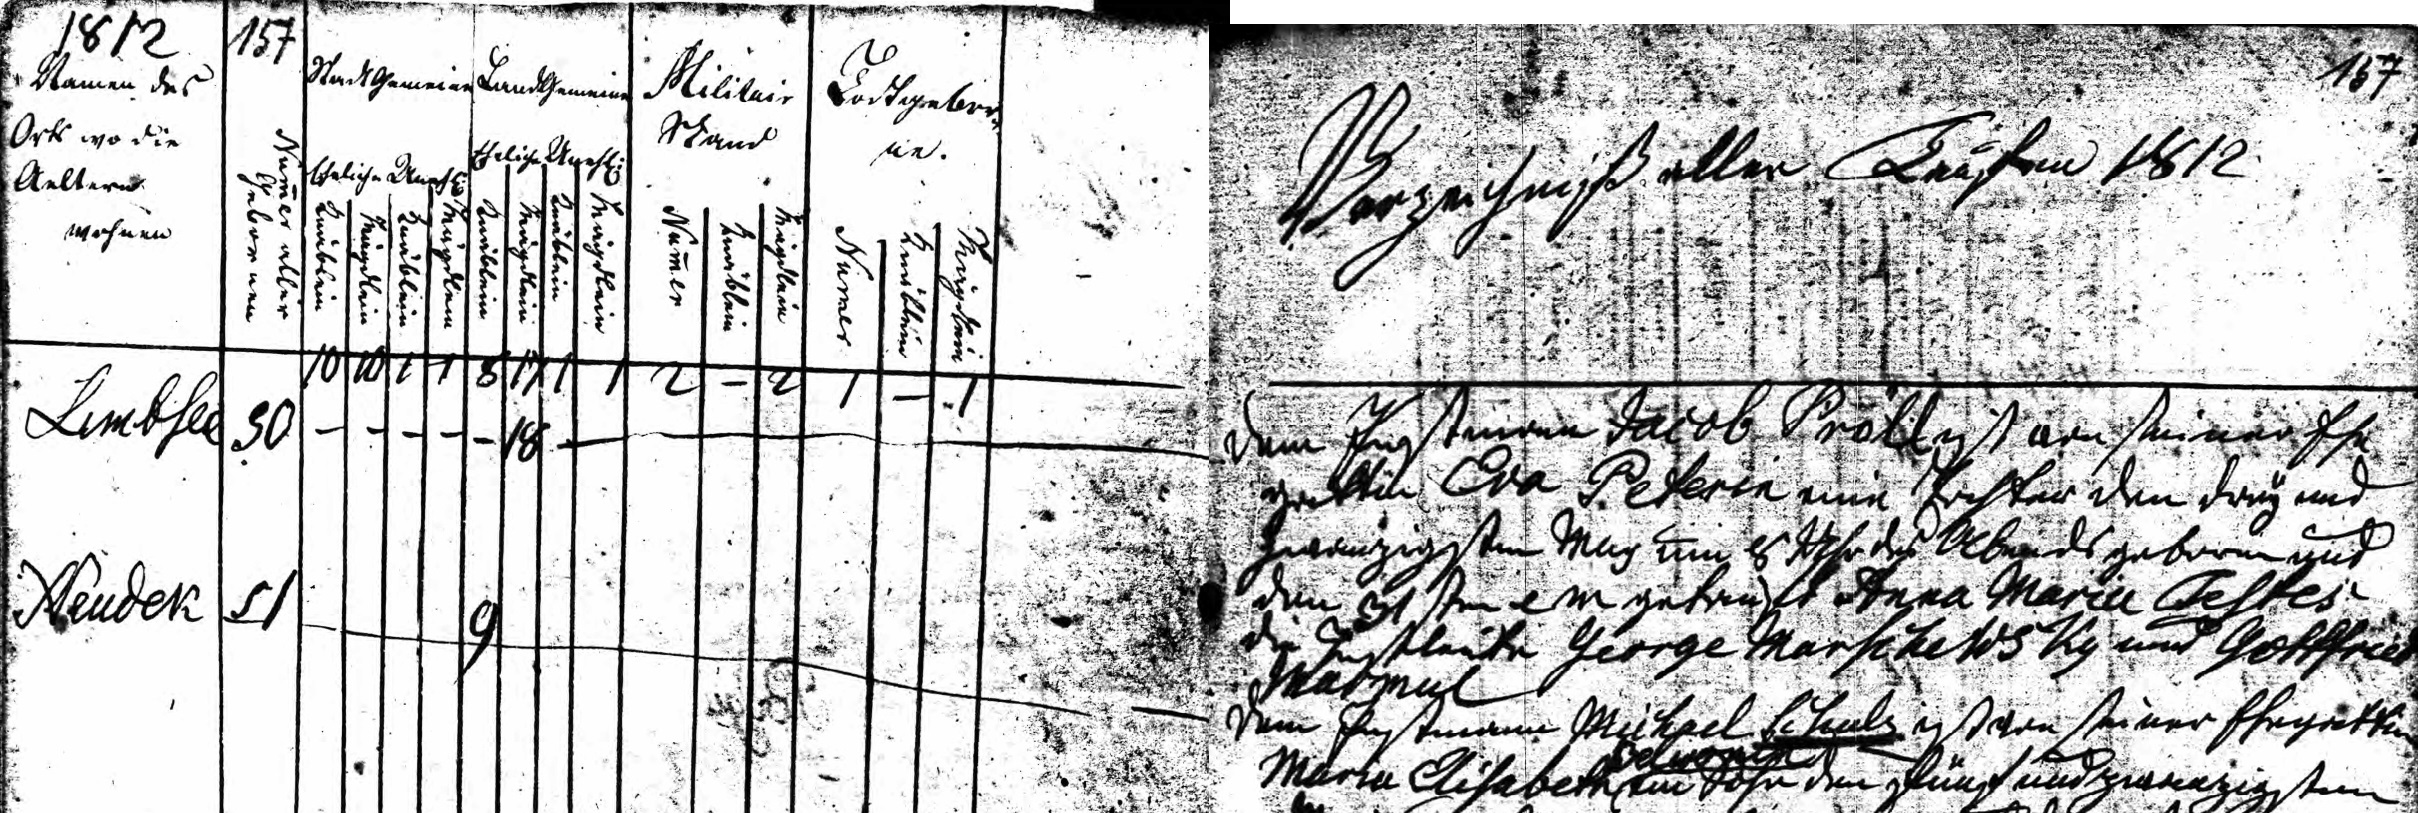 1812
157
Namen des
Orts wo die
Aeltern
wohnen
Numer aller
Gebornen
StadtGemeine
Eheliche Unehl:
Knäblein
Mägdlein
Knäblein
Mägdlein
LandGemeine
Eheliche Unehl:
Knäblein
Mägdlein
Knäblein
Mägdlein
Militair
Stand
Numer
Knäblein
Mägdlein
Todtgebor
ne.
Numer
Knäblein
Mägdlein
10 10 1 1 8 17 1 1 2 – 2 1 – 1
Limbsee 50 – – – – – 18
Neudek 51 9
157
Verzeichniß aller Taufen 1812
dem Instmann Jacob Pröll ist von seiner Ehe
gattin Eva Peterin eine Tochter den drey und
zwanzigsten May um 8 Uhr des Abends geboren und
den sten e m getauft Anna Maria Testes
die Instleute George Marschewsky und Gottfried
dem Instmann Michael Schulz ist von seiner Ehegattin
Maria Elisabeth ein Sohn den fünf und zwanzigsten